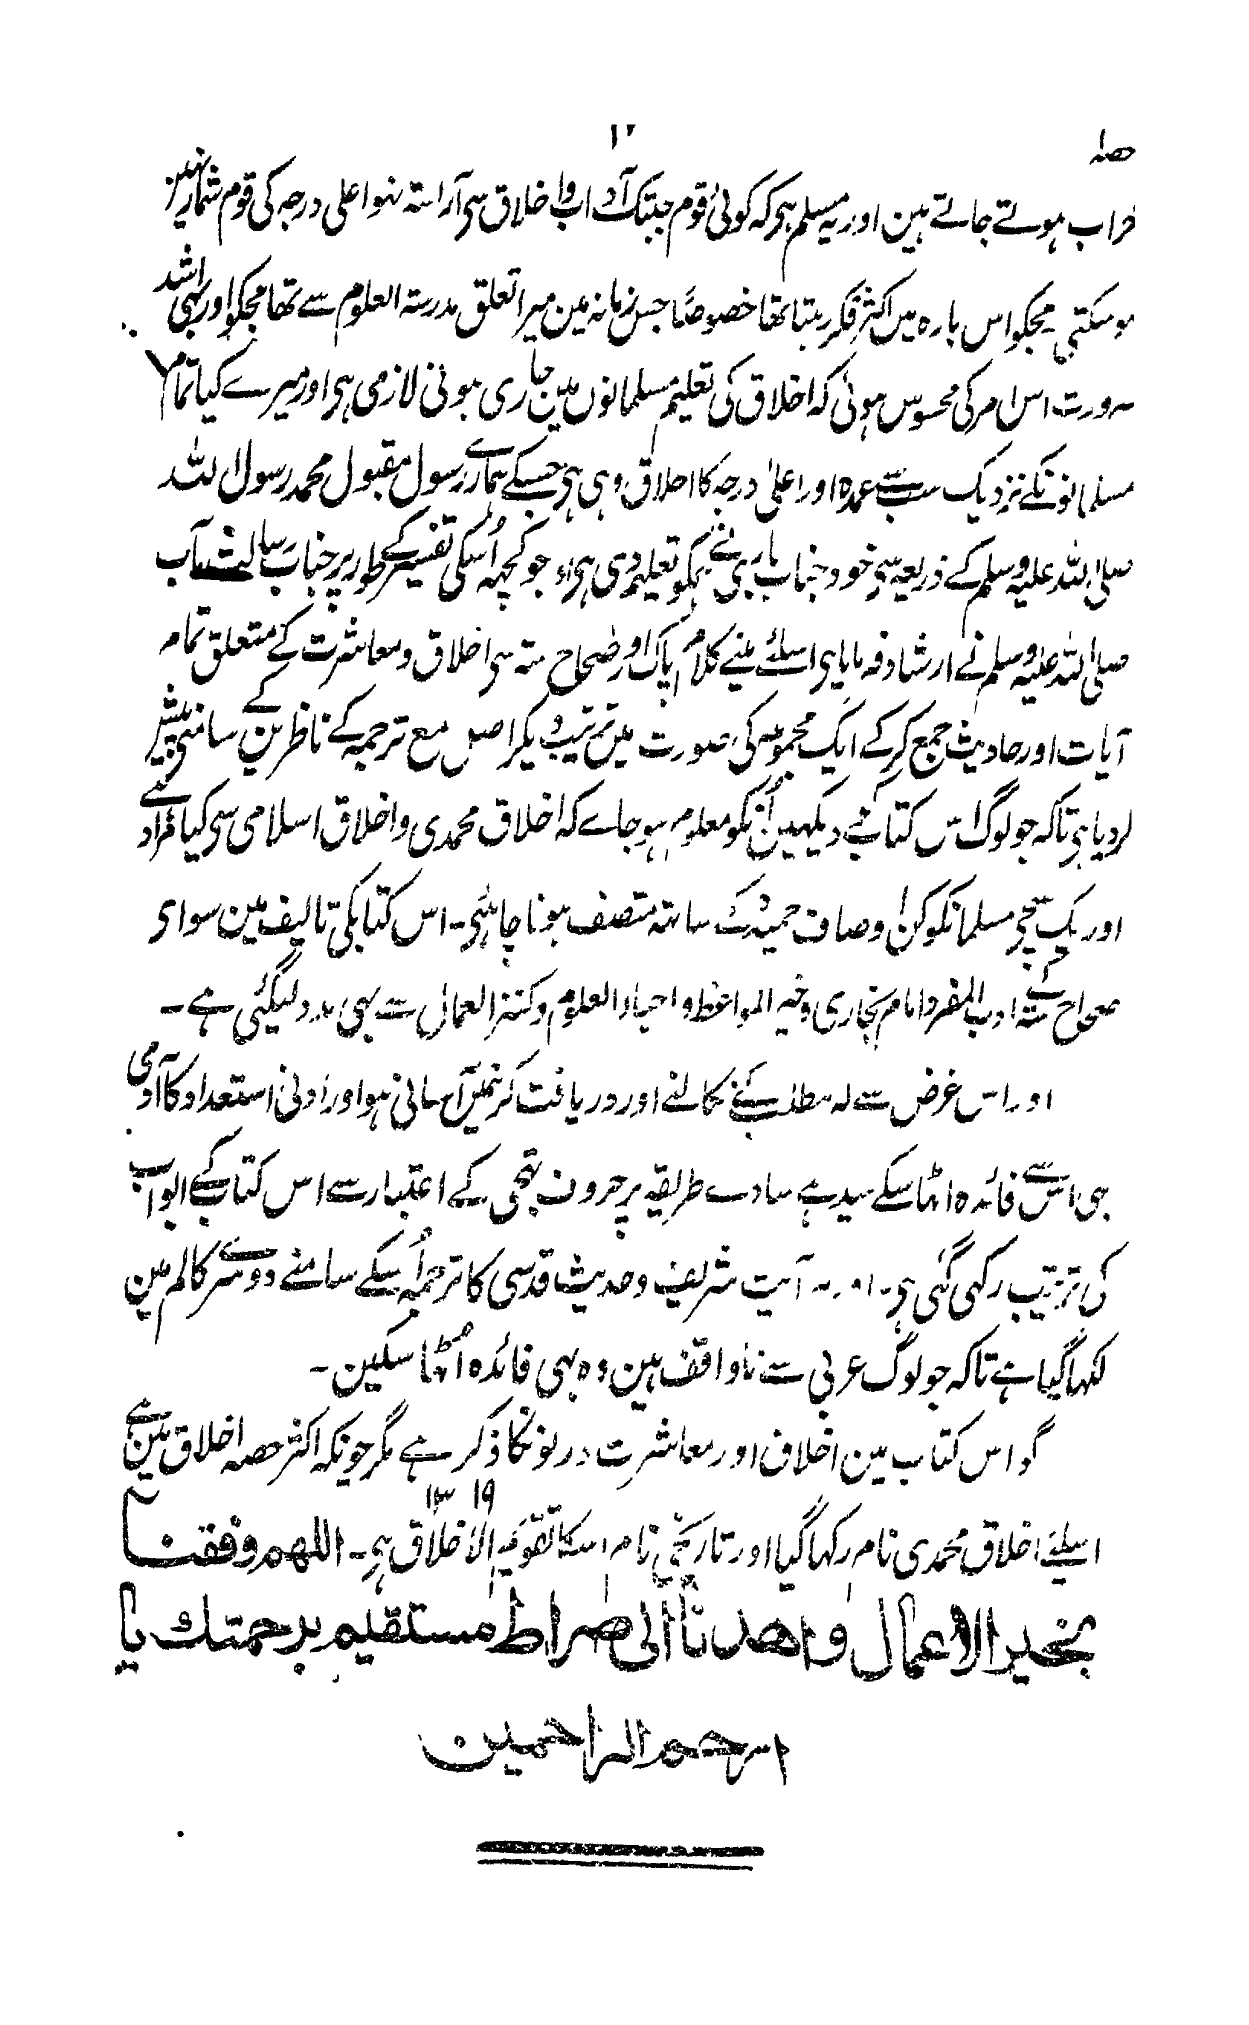 حصہ
۱۲
خراب ہوتے جاتے ہین اور یہ مسلم ہی کہ کوئی قوم جبتک آداب و اخلاق سی آراستہ نہو اعلی درجہ کی قوم شمار نہین
ہوسکتی مجکو اس بارہ مین اکثر فکر رہتا تھا خصوصاً جس زمانہ مین میرا تعلق مدرستہ العلوم سے تھا مجکو اور بھی اشد
ضرورت اس امر کی محسوس ہوئی کہ اخلاق کی تعلیم مسلمانوں مین جاری ہونی لازمی ہی اور میرے کیا تمام
مسلمانونکے نزدیک سب سے عمدہ اور اعلیٰ درجہ کا اخلاق وہی ہی جسکے ہمارے رسول مقبول محمد رسول اللہ
صلی اللہ علیہ وسلم کے ذریعہ سی خود جناب باری نے ہمکو تعلیم دی ہی اور جو کچھہ اُسکی تفسیر کے طور پر جناب رسالت مآب
صلی اللہ علیہ وسلم نے ارشاد فرمایا ہی اسلئے مینے کلام پاک اور صحاح ستہ سی اخلاق و معاشرت کے متعلق تمام
آیات اور احادیث جمع کرکے ایک مجموعہ کی صورت مین ترتیب دیکر اصل مع ترجمہ کے ناظرین کے سامنی پیش
کردیا ہی تاکہ جو لوگ اس کتاب کو دیکھین اُنکو معلوم ہو جاے کہ اخلاق محمدی و اخلاق اسلامی سی کیا مراد ہے
اور ایک سچی مسلمانکو کن اوصاف حمیدہ کے ساتہ متصف ہونا چاہئی۔ اس کتابکی تالیف مین سوای
صحاح ستہ کے ادب المفرد امام بخاری و خیر المواعظ و احیاء العلوم و کنز العمال سے بہی مدد لیگئی ہے۔
اور اس غرض سے کہ مطلب کے نکالنے اور دریافت کرنیمین آسانی ہو اور ادنیٰ استعداد کا آدمی
بہی اس سے فائدہ اٹہا سکے سیدہے سادے طریقہ پر حروف تہجی کے اعتبار سے اس کتاب کے ابواب
کی ترتیب رکہی گئی ہی۔ اور آیت شریف و حدیث قدسی کا ترجمہ اُسکے سامنے دوسرے کالم مین
لکہا گیا ہے تاکہ جو لوگ عربی سے ناواقف ہین وہ بہی فائدہ اُٹہا سکین۔
گو اس کتاب مین اخلاق اور معاشرت دونونکا ذکر ہے مگر چونکہ اکثر حصہ اخلاق مین ہے
اسلئے اخلاق محمدی نام رکہا گیا اور تاریخی نام اسکا تقویم الاخلاق ہی۔ اللهم وفقنا
۱۳ ۱۹
بخير الاعمال واهدنا الى صراط مستقيم برحمتك يا
ارحم الراحمين